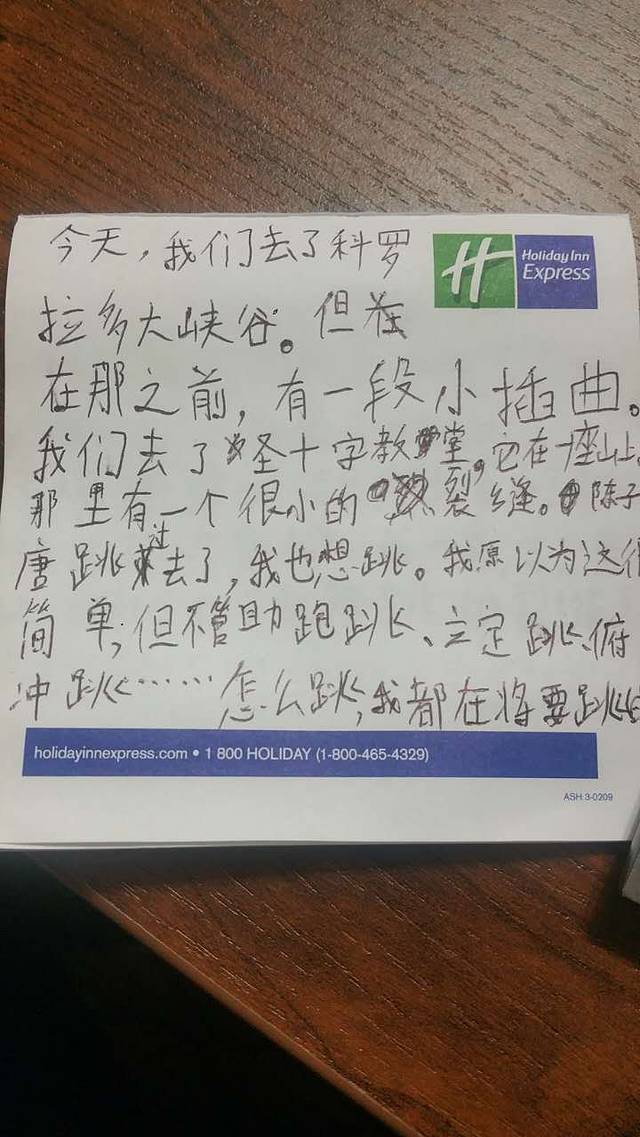 今天，我们去了科罗
Holiday Inn
Express
拉多大峡谷。但在
在那之前，有一段小插曲。
我们去了圣十字教堂。它在一座山上，
那里有一个很小的裂缝。陈子
唐跳过去了，我也想跳。我原以为这很
简单，但不管助跑跳、立定跳、俯
冲跳……怎么跳，我都在将要跳
holidayinnexpress.com • 1 800 HOLIDAY (1-800-465-4329)
ASH 3-0209